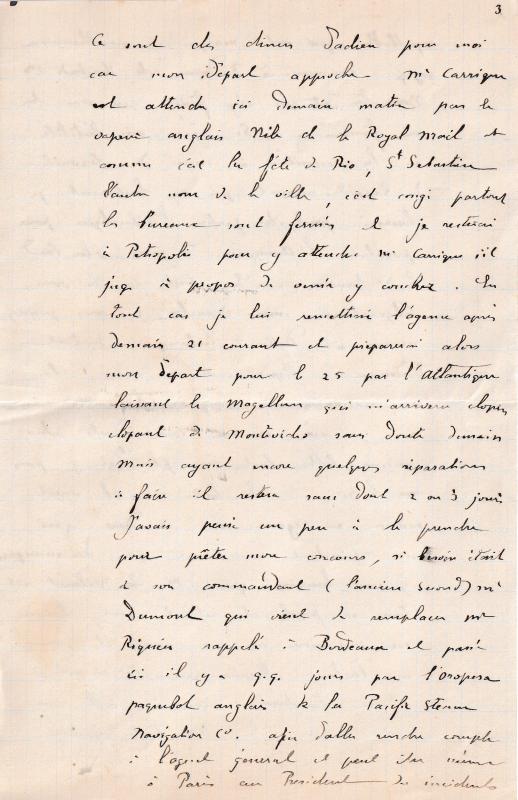 3
Ce sont des diners d'adieu pour moi
car mon départ approche Mr Carrique
est attendu ici demain matin par le
vapeur anglais Nile de la Royal Mail et
comme c'est la fête de Rio, St Sébastien
l'autre nom de la ville, c'est congé partout
les bureaux sont fermés et je resterai
à Petropolis pour y attendre Mr Carrique s'il
juge à propos de venir y coucher. En
tout cas je lui remettrai l'agence après
demain 21 courant et préparerai alors
mon départ pour le 25 par l'Atlantique
laissant le Magellan qui m'arrivera clopin
clopant de Montevideo sans doute demain
mais ayant encore quelques réparations
à faire il restera sans dout 2 ou 3 jours
J'avais pensé un peu à le prendre
pour prêter mon concours, si besoin était
à son commandant (l'ancien second) Mr
Dumont qui vient de remplacer Mr
Riquier rappelé à Bordeaux et passé
ici il y a q.q. jours par l'Oropesa
paquebot anglais de la Pacific Steam
Navigation Co. afin d'aller rendre compte
à l'agent général et peut être même
à Paris au President des incidents